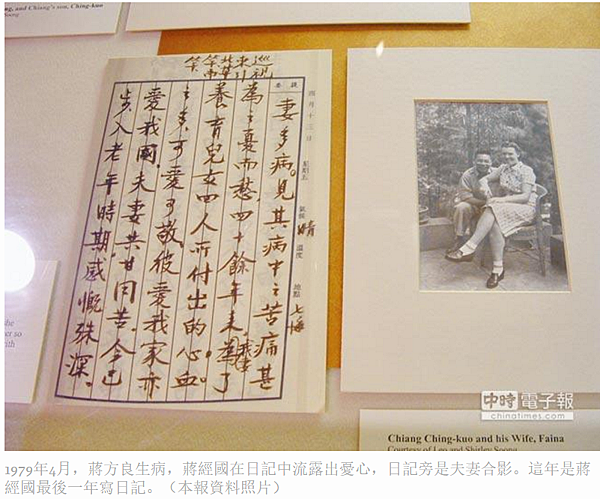 ng, and Chiang's son, Ching-kuo
Soong
巡視
東引
提要
四月十三日
星期五
氣候 晴
溫度
地點 七海
妻多病。見其病中之苦痛甚
為之憂而愁,四十餘年來,為了
養育兒女四人所付出的心血。
之多,可愛可敬,彼愛我家亦
愛我國,夫妻共甘同苦,今已
步入老年時期,感慨殊深。
he
er so
with
中時電子報
chinatimes.com
Chiang Ching-kuo and his Wife, Faina
Courtesy of Leo and Shirley Soong
1979年4月,蔣方良生病,蔣經國在日記中流露出憂心,日記旁是夫妻合影。這年是蔣
經國最後一年寫日記。(本報資料照片)